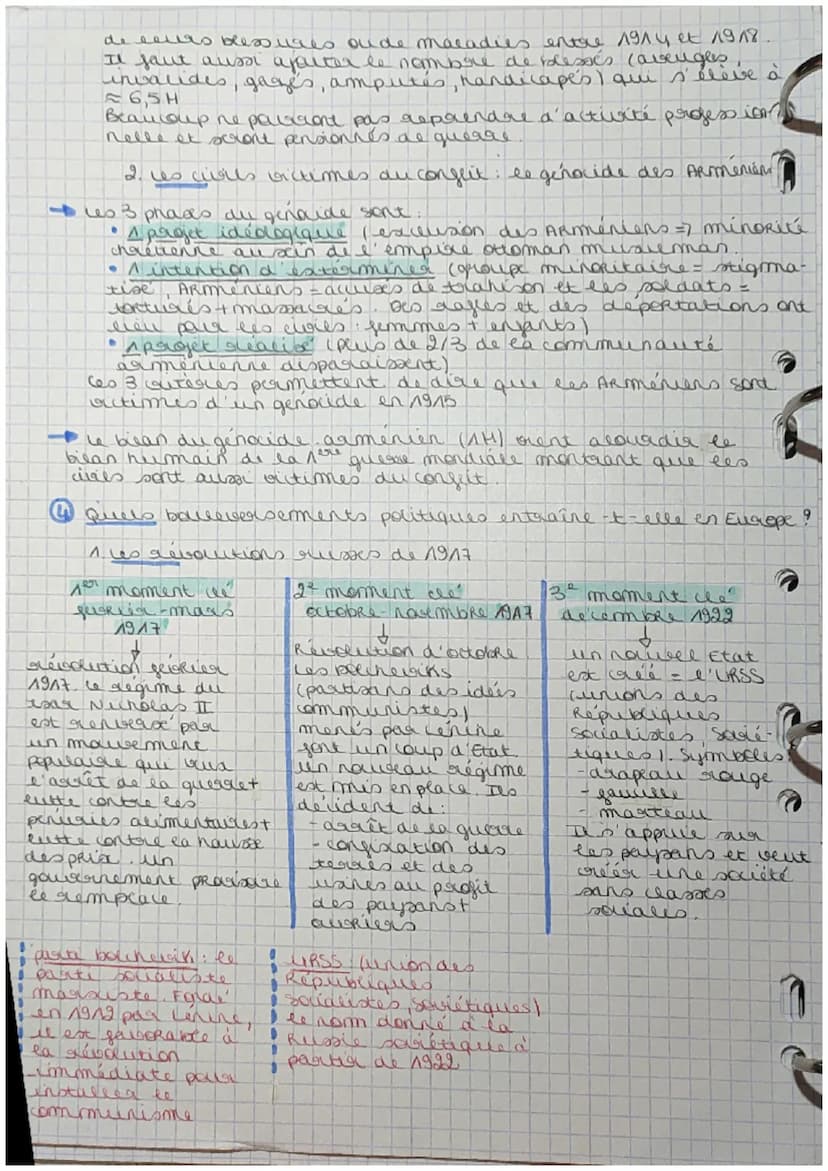 de leurs blessures ou de maladies entre 1914 et 1918.
Il faut aussi ajouter le nombre de blessés (aveugles,
invalides, gazés, amputés, handicapés) qui s'élève à
≈ 6,5M
Beaucoup ne pourront pas reprendre d'activité profession
nelle et seront pensionnés de guerre.
2. Les civils victimes du conflit : le génocide des Arménien
→ Les 3 phases du génocide sont :
• 1 projet idéologique (exclusion des Arméniens => minorité
chrétienne au sein de l'empire ottoman musulman.
• 1 intention d'exterminer (groupe minoritaire = stigma-
tisé, Arméniens = accusés de trahison et les soldats =
torturés + massacrés. Des rafles et des déportations ont
lieu pour les civiles : femmes + enfants)
• 1 projet réalisé (plus de 2/3 de la communauté
arménienne disparaissent)
Ces 3 critères permettent de dire que les Arméniens sont
victimes d'un génocide en 1915
→ Le bilan du génocide arménien (1M) vient alourdir le
bilan humain de la 1ère guerre mondiale montrant que les
civiles sont aussi victimes du conflit.
④ Quels bouleversements politiques entraîne-t-elle en Europe ?
1. Les révolutions russes de 1917
1er moment clé
février-mars
1917
↓
révolution février
1917. Le régime du
tsar Nicholas II
est renversé par
un mouvement
populaire qui veut
l'arrêt de la guerre +
lutte contre les
pénuries alimentaires +
lutte contre la hausse
des prix. Un
gouvernement provisoire
le remplace.
2e moment clé
octobre-novembre 1917
↓
Révolution d'octobre
Les bolcheviks
(partisans des idées
communistes)
menés par Lénine
font un coup d'Etat
Un nouveau régime
est mis en place. Ils
décident de :
- arrêt de la guerre
- confixation des
terres et des
usines au profit
des paysans +
ouvriers
3e moment clé
décembre 1922
↓
un nouvel Etat
est créé = l'URSS
(unions des
Républiques
socialistes, Sovié-
tiques). Symboles
- drapeau rouge
- faucille
- marteau
Il s'appuie sur
les paysans et veut
créer une société
sans classes
sociales.
parti bolchevik : le
parti socialiste
marxiste. Fondé
en 1912 par Lénine,
il est favorable à
la révolution
immédiate pour
installer le
communisme
URSS : (union des
Républiques
socialistes, Soviétiques)
le nom donné à la
Russie soviétique à
partir de 1922